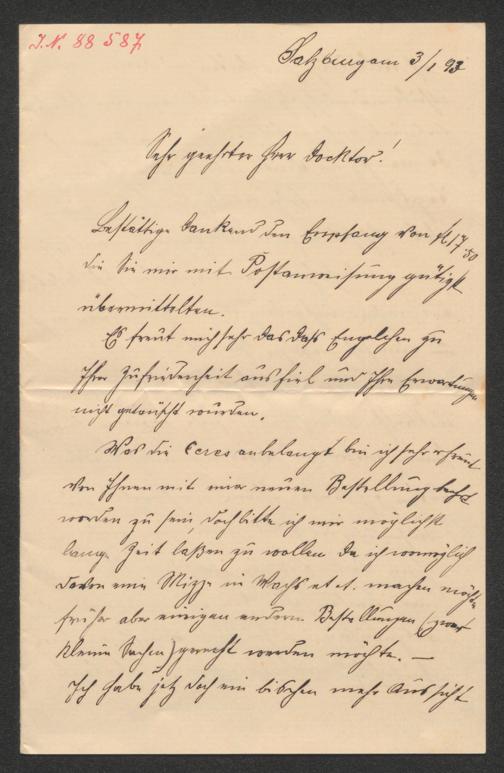 J.N. 88 587
Salzburg am 3/1 93
Sehr geehrter Herr Docktor!
Bestättige dankend den Empfang von fl 17.50
die Sie mir mit Postanweisung gütigst
übermittelten.
Es freut mich sehr das das Engelchen zu
Ihrer Zufriedenheit ausfiel und Ihre Erwartungen
nicht getäuscht wurden.
Was die Ceres anbelangt bin ich sehr erfreut
von Ihnen mit einer neuen Bestellung
worden zu sein doch bitte ich mir möglichst
lange Zeit laßen zu wollen da ich womöglich
davon eine Skizze in Wachs et. t. machen möchte
früher aber einigen andern Bestellungen (zwar
kleine Sachen) gerecht werden möchte. —
Ich habe jetz doch ein bischen mehr Aussicht